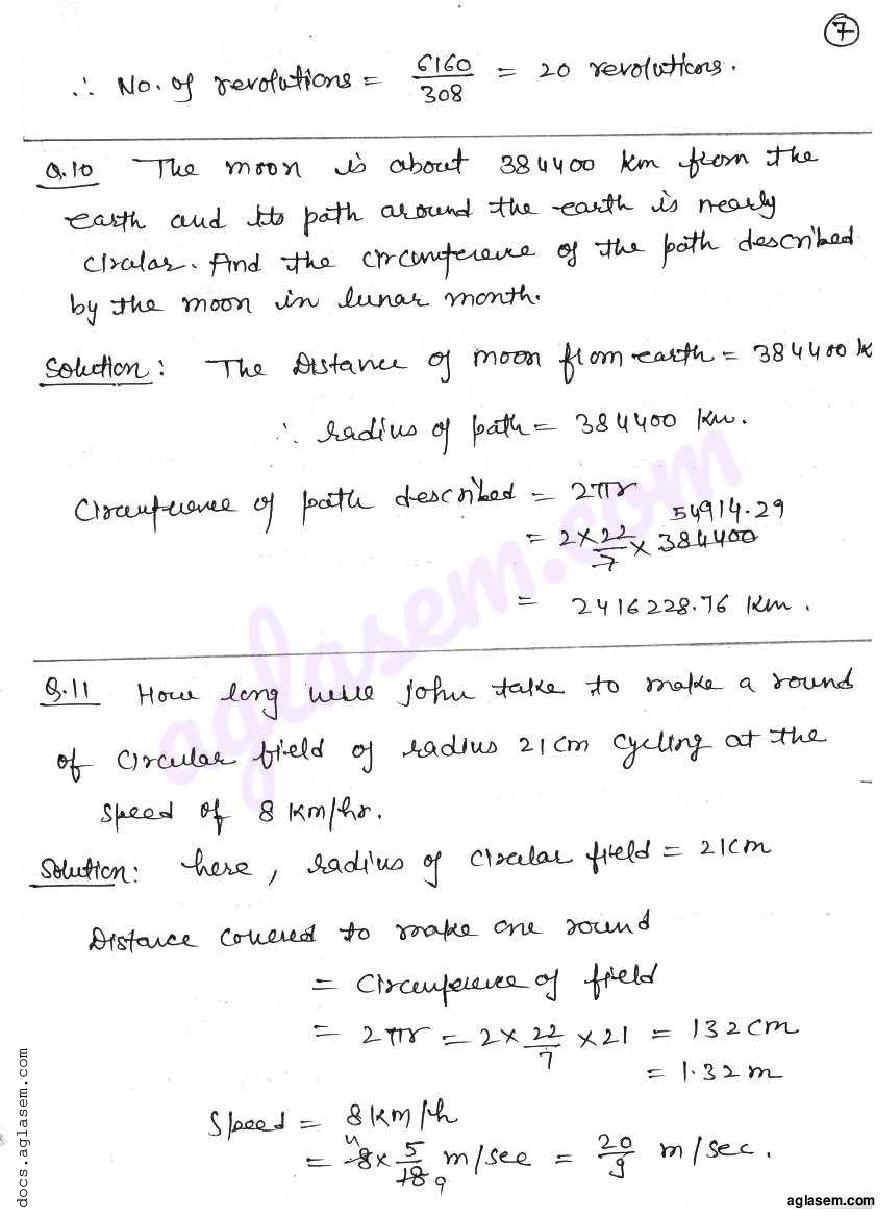 7
∴ No. of revolutions = 6160/308 = 20 revolutions.
Q.10 The moon is about 384400 km from the
earth and its path around the earth is nearly
circular. Find the circumference of the path described
by the moon in lunar month.
Solution: The Distance of moon from earth = 384400 k
∴ radius of path = 384400 km.
Circumference of path described = 2πr
54914.29
= 2 × 22/7 × 384400
= 2416228.76 Km.
Q.11 How long will john take to make a round
of circular field of radius 21cm cycling at the
speed of 8 km/hr.
Solution: here, radius of circular field = 21cm
Distance covered to make one round
= Circumference of field
= 2πr = 2 × 22/7 × 21 = 132 cm
= 1.32 m
Speed = 8 km/h
4
= 8 × 5/18 m/sec = 20/9 m/sec.
9
aglasem.com
docs.aglasem.com
aglasem.com